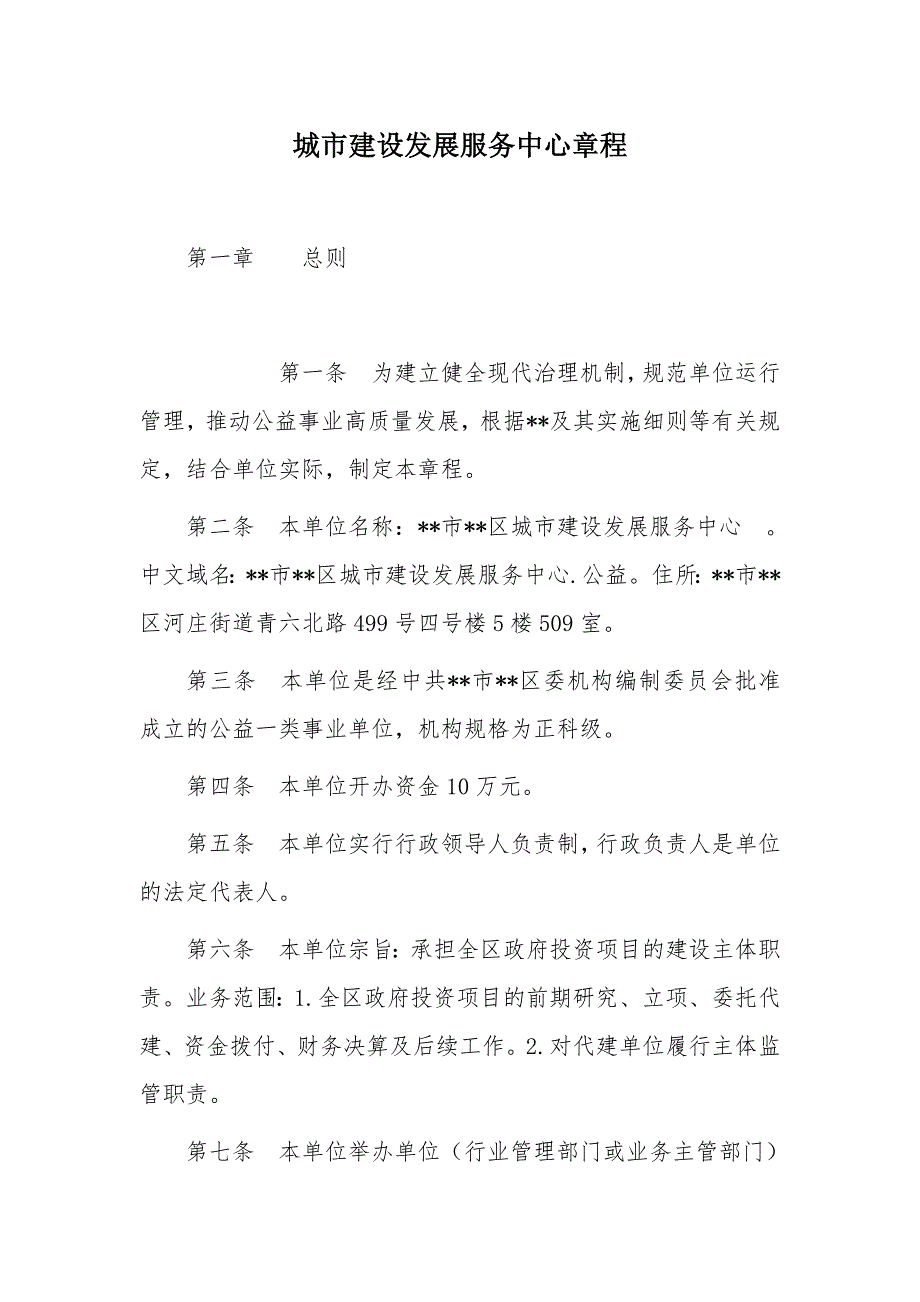 城市建设发展服务中心章程
第一章　　总则
第一条　为建立健全现代治理机制，规范单位运行
管理，推动公益事业高质量发展，根据**及其实施细则等有关规
定，结合单位实际，制定本章程。
第二条　本单位名称：**市**区城市建设发展服务中心　。
中文域名：**市**区城市建设发展服务中心.公益。住所：**市**
区河庄街道青六北路 499 号四号楼 5 楼 509 室。
第三条　本单位是经中共**市**区委机构编制委员会批准
成立的公益一类事业单位，机构规格为正科级。
第四条　本单位开办资金 10 万元。
第五条　本单位实行行政领导人负责制，行政负责人是单位
的法定代表人。
第六条　本单位宗旨：承担全区政府投资项目的建设主体职
责。业务范围：1.全区政府投资项目的前期研究、立项、委托代
建、资金拨付、财务决算及后续工作。2.对代建单位履行主体监
管职责。
第七条　本单位举办单位（行业管理部门或业务主管部门）